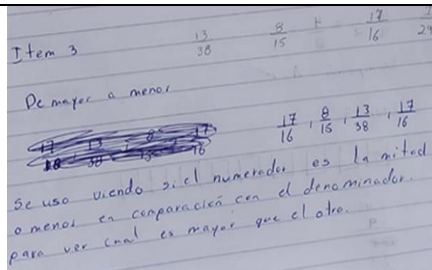 Item 3 13/38 8/15 17/16
De mayor a menor
17/16, 8/15, 13/38, 17/16
Se uso viendo si el numerador es la mitad
o menos en comparación con el denominador.
para ver cual es mayor que el otro.